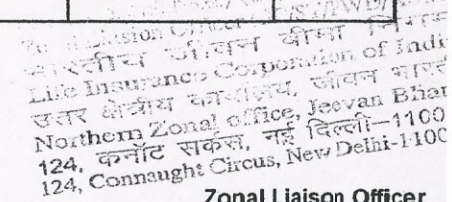 Liaison Officer
भारतीय जीवन बीमा निगम
Life Insurance Corporation of Indi
उत्तर क्षेत्रीय कार्यालय, जीवन भारत
Northern Zonal office, Jeevan Bhar
124, कनॉट सर्कस, नई दिल्ली-1100
124, Connaught Circus, New Delhi-1100
Zonal Liaison Officer